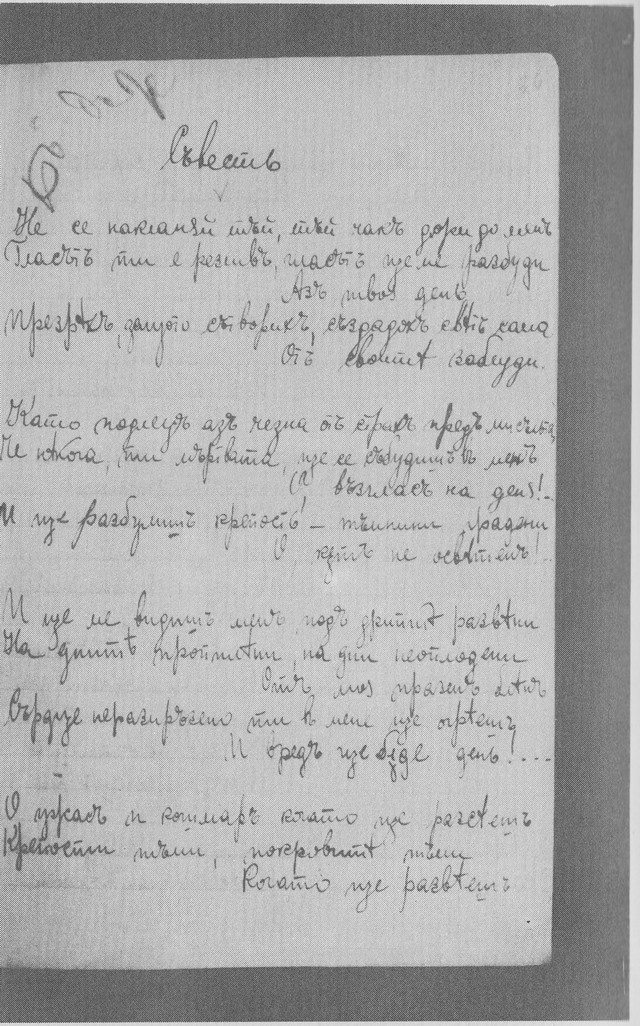 Съвесть
Не се накланяй тъй, тъй чакъ дори до менъ
Гласътъ ти е резливъ, гласътъ ще ме разбуди
Азъ твоя день
Презрѣхъ, защото сътворихъ, създадохъ свѣтъ сама
Отъ своитѣ заблуди.
Като подлецъ азъ чезна отъ страхъ предъ мисъльта,
Че нѣкога, ти мъртвата, ще се събудишъ въ менъ
О, възгласъ на деня!..
И ще разбулишъ крепость! – тъмнини
О, кѫтъ не освѣтенъ!..
И ще ме видишъ менъ подъ дрипитѣ развѣни
На днитѣ пропилени, на дни неоплодени
Отъ моя празенъ
Сърдце неразкръсено ти въ мене ще огрѣешъ
И вредъ ще бѫде день!...
О ужасъ и кошмаръ когато ще разсѣешъ
Крепости тъми, покровитѣ тъми
Когато ще развѣешъ